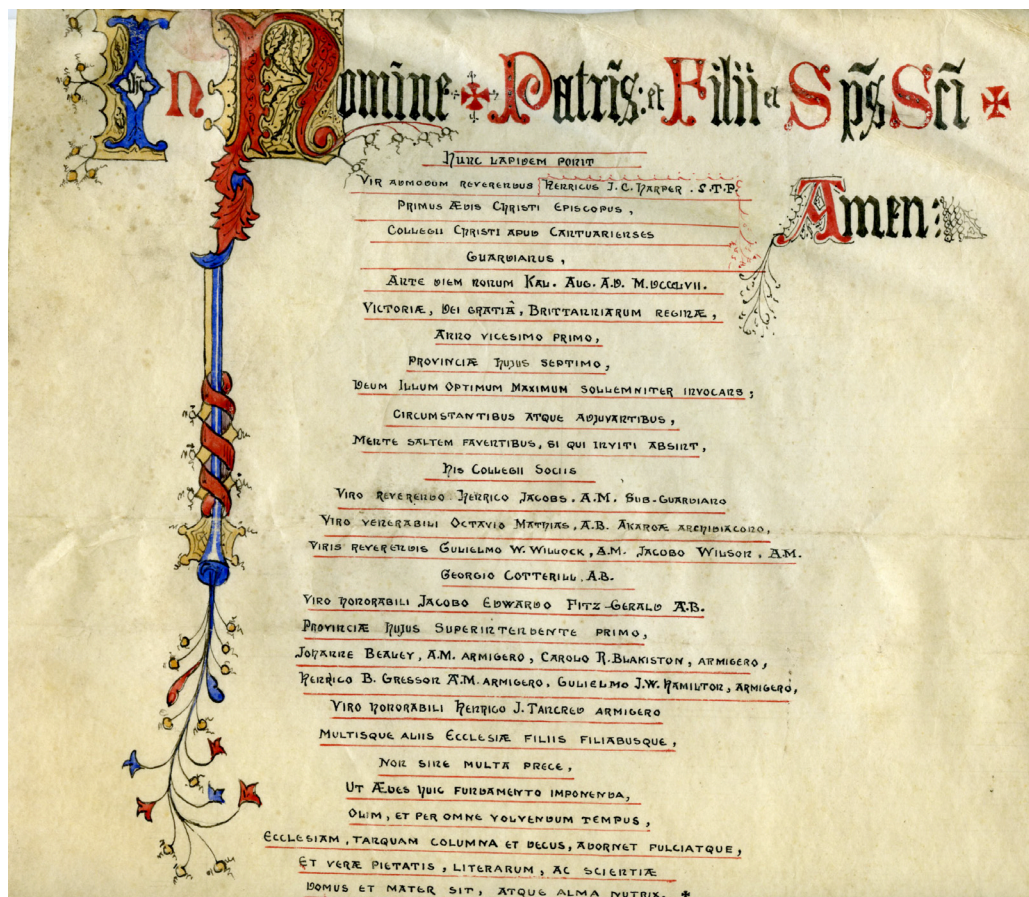 In Nomine ✠ Patris: et Filii et Sp̃s Sc̃i ✠
Amen:
Hunc lapidem ponit
Vir admodum reverendus Henricus J. C. Harper . S.T.P.
Primus Ædis Christi Episcopus,
Collegii Christi apud Cantuarienses
Guardianus,
Ante diem nonum Kal. Aug. A.D. M.DCCCLVII.
Victoriæ, Dei gratiâ, Brittanniarum reginæ,
Anno vicesimo primo,
Provinciæ hujus septimo,
Deum Illum Optimum Maximum sollemniter invocans;
Circumstantibus atque adjuvantibus,
Mente saltem faventibus, si qui inviti absint,
his Collegii Sociis
Viro reverendo Henrico Jacobs, A.M. Sub-Guardiano
Viro venerabili Octavio Mathias, A.B. Akaroæ archidiacono,
Viris reverendis Gulielmo W. Willock, A.M. Jacobo Wilson, A.M.
Georgio Cotterill, A.B.
Viro honorabili Jacobo Edwardo Fitz-Gerald A.B.
Provinciæ hujus Superintendente primo,
Johanne Bealey, A.M. armigero, Carolo R. Blakiston, armigero,
Henrico B. Gresson A.M. armigero, Gulielmo J.W. Hamilton, armigero,
Viro honorabili Henrico J. Tancred armigero
Multisque aliis Ecclesiæ filiis filiabusque,
Non sine multâ prece,
Ut Ædes huic fundamento imponenda,
Olim, et per omne volvendum tempus,
Ecclesiam, tanquam columna et decus, adornet fulciatque,
Et veræ pietatis, literarum, ac scientiæ
Domus et mater sit, atque alma nutrix. ✠